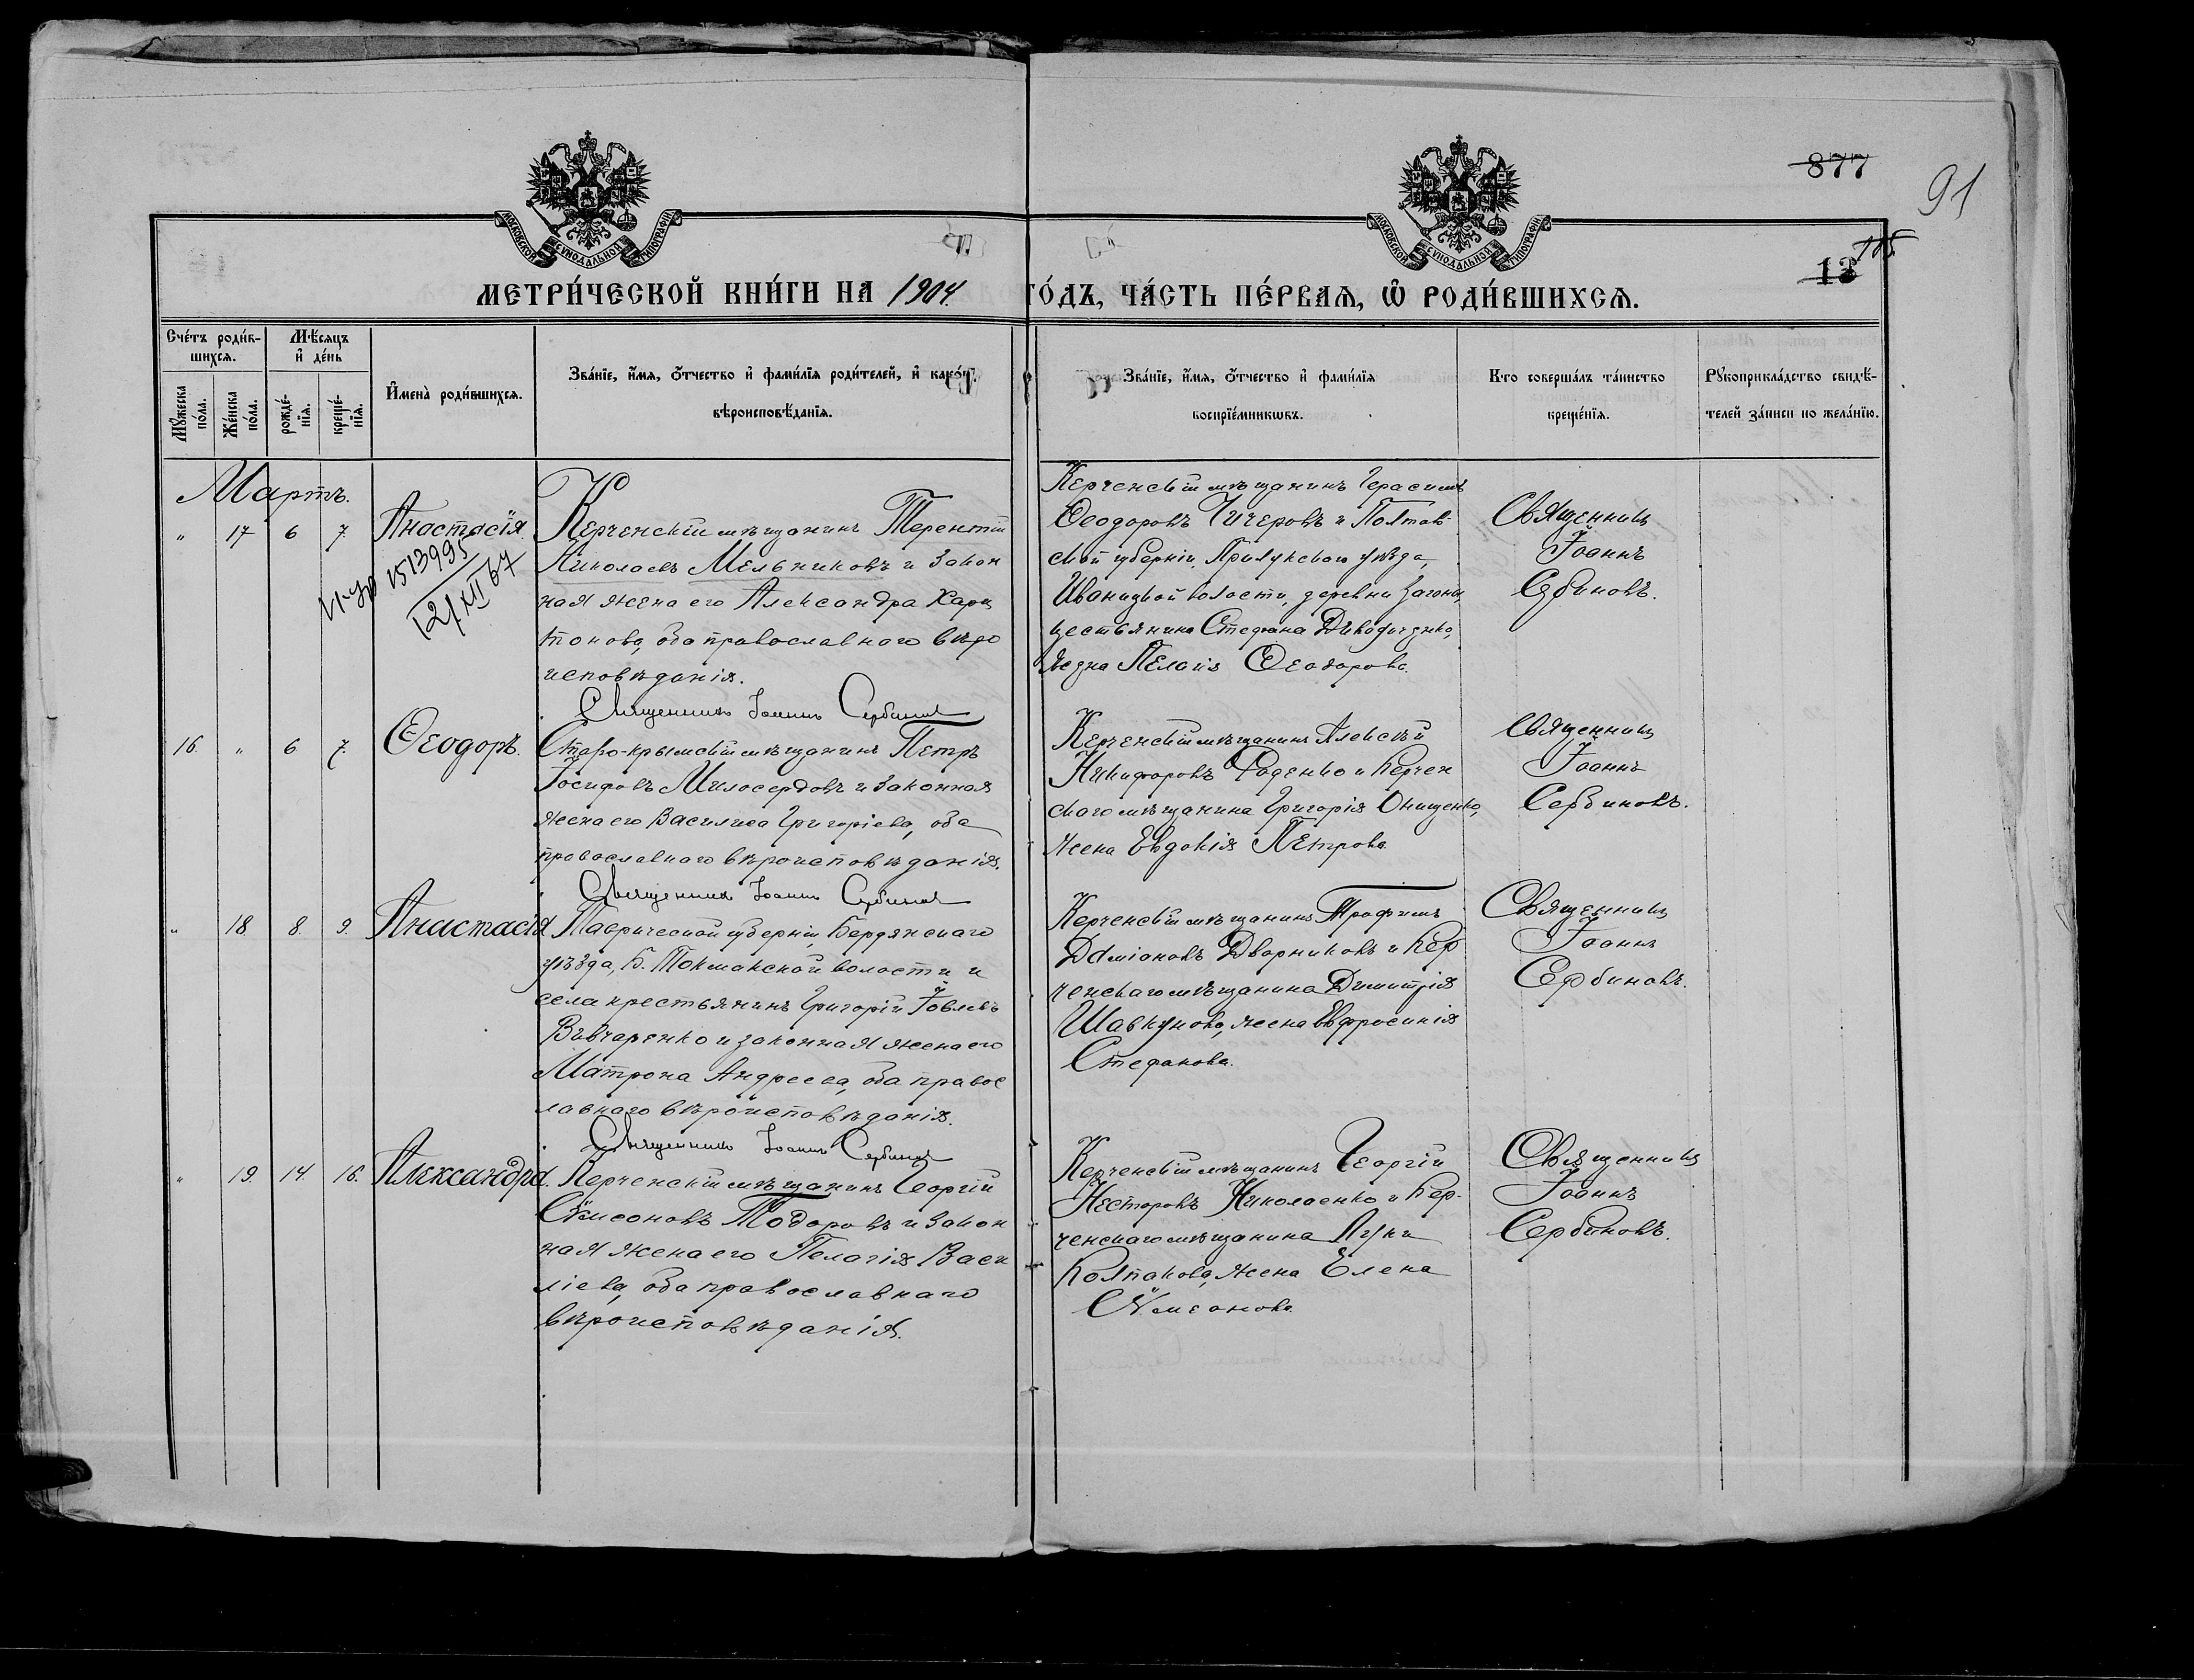 877
91
105
13
МОСКОВСКОЙ СѴНОДАЛЬНОЙ ТИПОГРАФІИ
МОСКОВСКОЙ СѴНОДАЛЬНОЙ ТИПОГРАФІИ
МЕТРИ́ЧЕСКОЙ КНИ́ГИ НА 1904. ГО́ДЪ, ЧА́СТЬ ПЕ́РВАЯ, Ѽ РОДИ́ВШИХСѦ.
Сче́тъ роди́в-
шихсѧ.
Мꙋ́жеска по́ла.
Же́нска по́ла.
Мѣ́сѧцъ
и҆ де́нь
рожде́-
нїѧ.
креще́-
нїѧ.
И҆мена̀ роди́вшихсѧ.
Зва́нїе, и҆́мѧ, ѻ҆́тчество и҆ фами́лїѧ роди́телей, и҆ како́гѡ
вѣроисповѣ́данїѧ.
Зва́нїе, и҆́мѧ, ѻ҆́тчество и҆ фами́лїѧ
воспрїе́мникѡвъ.
Кто соверша́лъ та́инство
креще́нїѧ.
Рꙋкоприкла́дство свидѣ́-
телей за́писи по жела́нїю.
Мартъ.
" 17 6 7. Анастасія
1513995
12/XII 67
Керченскій мѣщанинъ Терентій
Николаевъ Мельниковъ и закон
ная жена его Александра Хари
тонова, оба православнаго вѣро
исповѣданія.
Священникъ Іоаннъ Сербиновъ
Керченскій мѣщанинъ Герасимъ
Ѳеодоровъ Чичеровъ и Полтав-
ской губерніи, Прилукскаго уѣзда,
Иваницкой волости, деревни
крестьянина Стефана
жена Пелагія Ѳеодорова.
Священникъ
Іоаннъ
Сербиновъ.
16. " 6 7. Ѳеодоръ.
Старо-крымскій мѣщанинъ Петръ
Іосифовъ Милосердовъ и законная
жена его Василиса Григоріева, оба
православнаго вѣроисповѣданія.
Священникъ Іоаннъ Сербиновъ
Керченскій мѣщанинъ Алексѣй
Никифоровъ Раденко и Керчен
скаго мѣщанина Григорія Онищенко,
жена Евдокія Петрова.
Священникъ
Іоаннъ
Сербиновъ.
" 18. 8. 9. Анастасія
Таврической губерніи, Бердянскаго
уѣзда, Б. Токмакской волости и
села крестьянинъ Григорій Іовлевъ
Вивчаренко и законная жена его
Матрона Андреева, оба правос
лавнаго вѣроисповѣданія.
Священникъ Іоаннъ Сербиновъ
Керченскій мѣщанинъ Трофимъ
Даміановъ Дворниковъ и Кер
ченскаго мѣщанина Димитрія
Шавкунова, жена Евфросинія
Стефанова.
Священникъ
Іоаннъ
Сербиновъ.
" 19. 14. 16. Александра.
Керченскій мѣщанинъ Георгій
Сѵмеоновъ Тодоровъ и закон
ная жена его Пелагія Васи
ліева, оба православнаго
вѣроисповѣданія.
Керченскій мѣщанинъ Георгій
Несторовъ Николаенко и Кер-
ченскаго мѣщанина Луки
Колпакова, жена Елена
Сѵмеонова.
Священникъ
Іоаннъ
Сербиновъ.